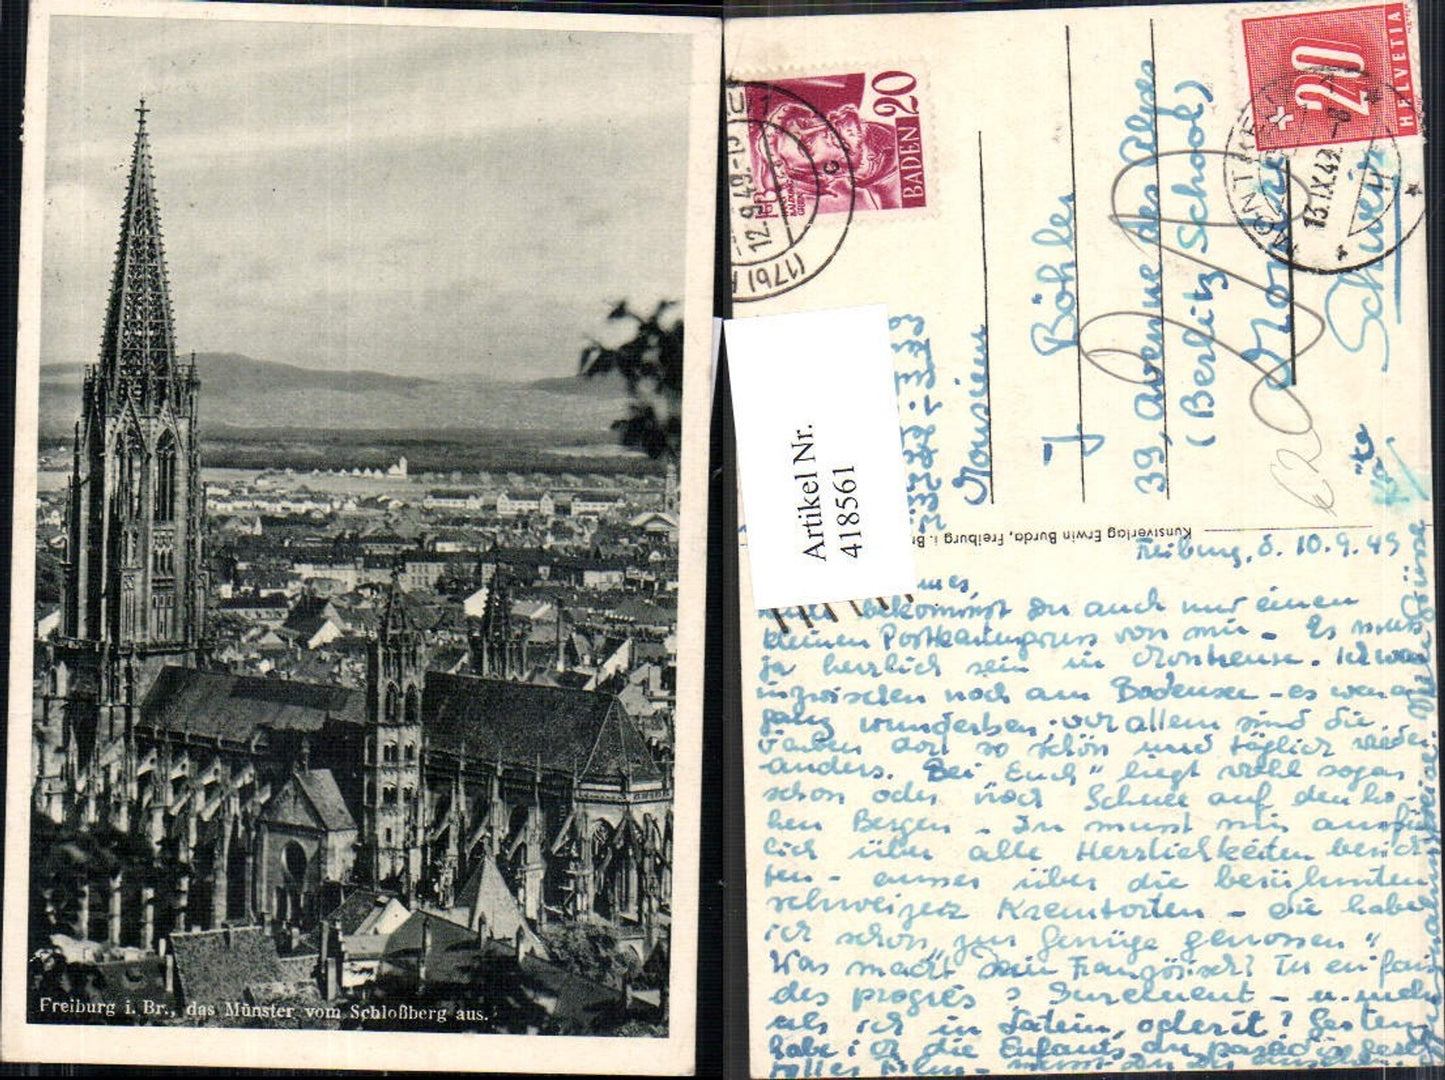 Freiburg i. Br., das Münster vom Schloßberg aus.
BADEN 20
HANS BALDUNG GRIEN
12.9.49
(17b)
20 HELVETIA
MONTREUX
13.IX.49.
Artikel Nr.
418561
J. Böhler
39, Avenue des Alpes
(Berlitz School)
Schweiz
Kunstverlag Erwin Burda, Freiburg i. Br
Freiburg, d. 10.9.49
bekommst Du auch mal einen
kleinen Postkartengruss von mir. Es muss
ja herrlich sein in Montreux. Ich war
inzwischen noch am Bodensee - es war
ganz wunderbar; vor allem sind die
Farben dort so schön und täglich wieder
anders. Bei „Euch" liegt wohl sogar
schon oder noch Schnee auf den ho-
hen Bergen. Du musst mir ausführ
lich über alle Herrlichkeiten berich
ten - ausser über die berühmten
schweizer Kremtorten - die habe
ich schon „zur Genüge genossen"
Was macht Dein Französisch? Tu en fais
des progrès? Surement - u. mehr
als ich in Latein, oder it? Gestern
habe ich die Enfants du paradis gesehen
tolles Film - musst Du Dir
Käte